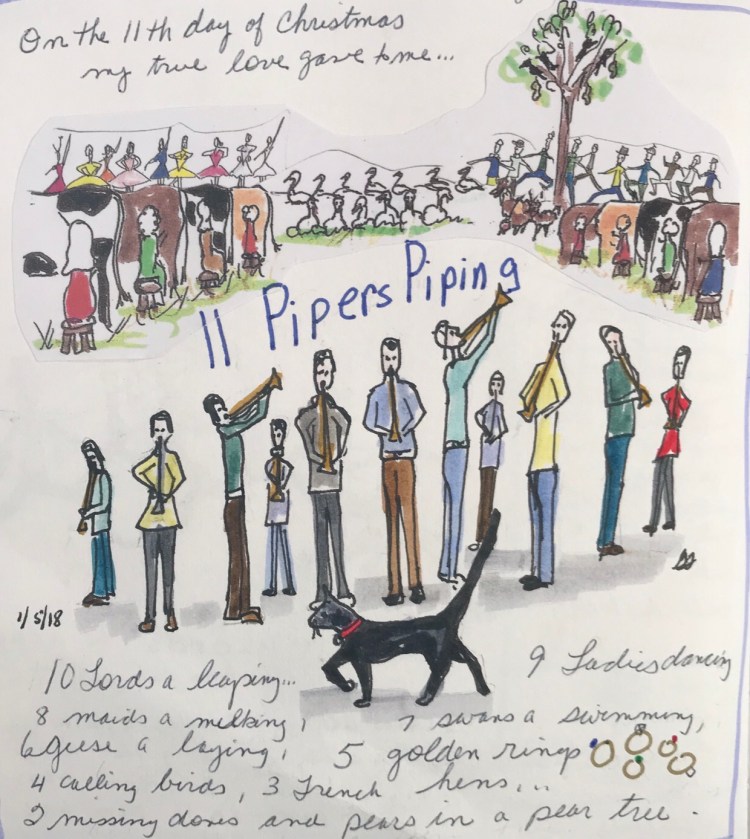 On the 11th day of Christmas
my true love gave to me...
11 Pipers Piping
1/5/18
10 Lords a leaping...
9 Ladies dancing
8 maids a melking,
7 swans a swimming,
6 geese a laying,
5 golden rings
4 calling birds, 3 French hens...
2 missing doves and pears in a pear tree.